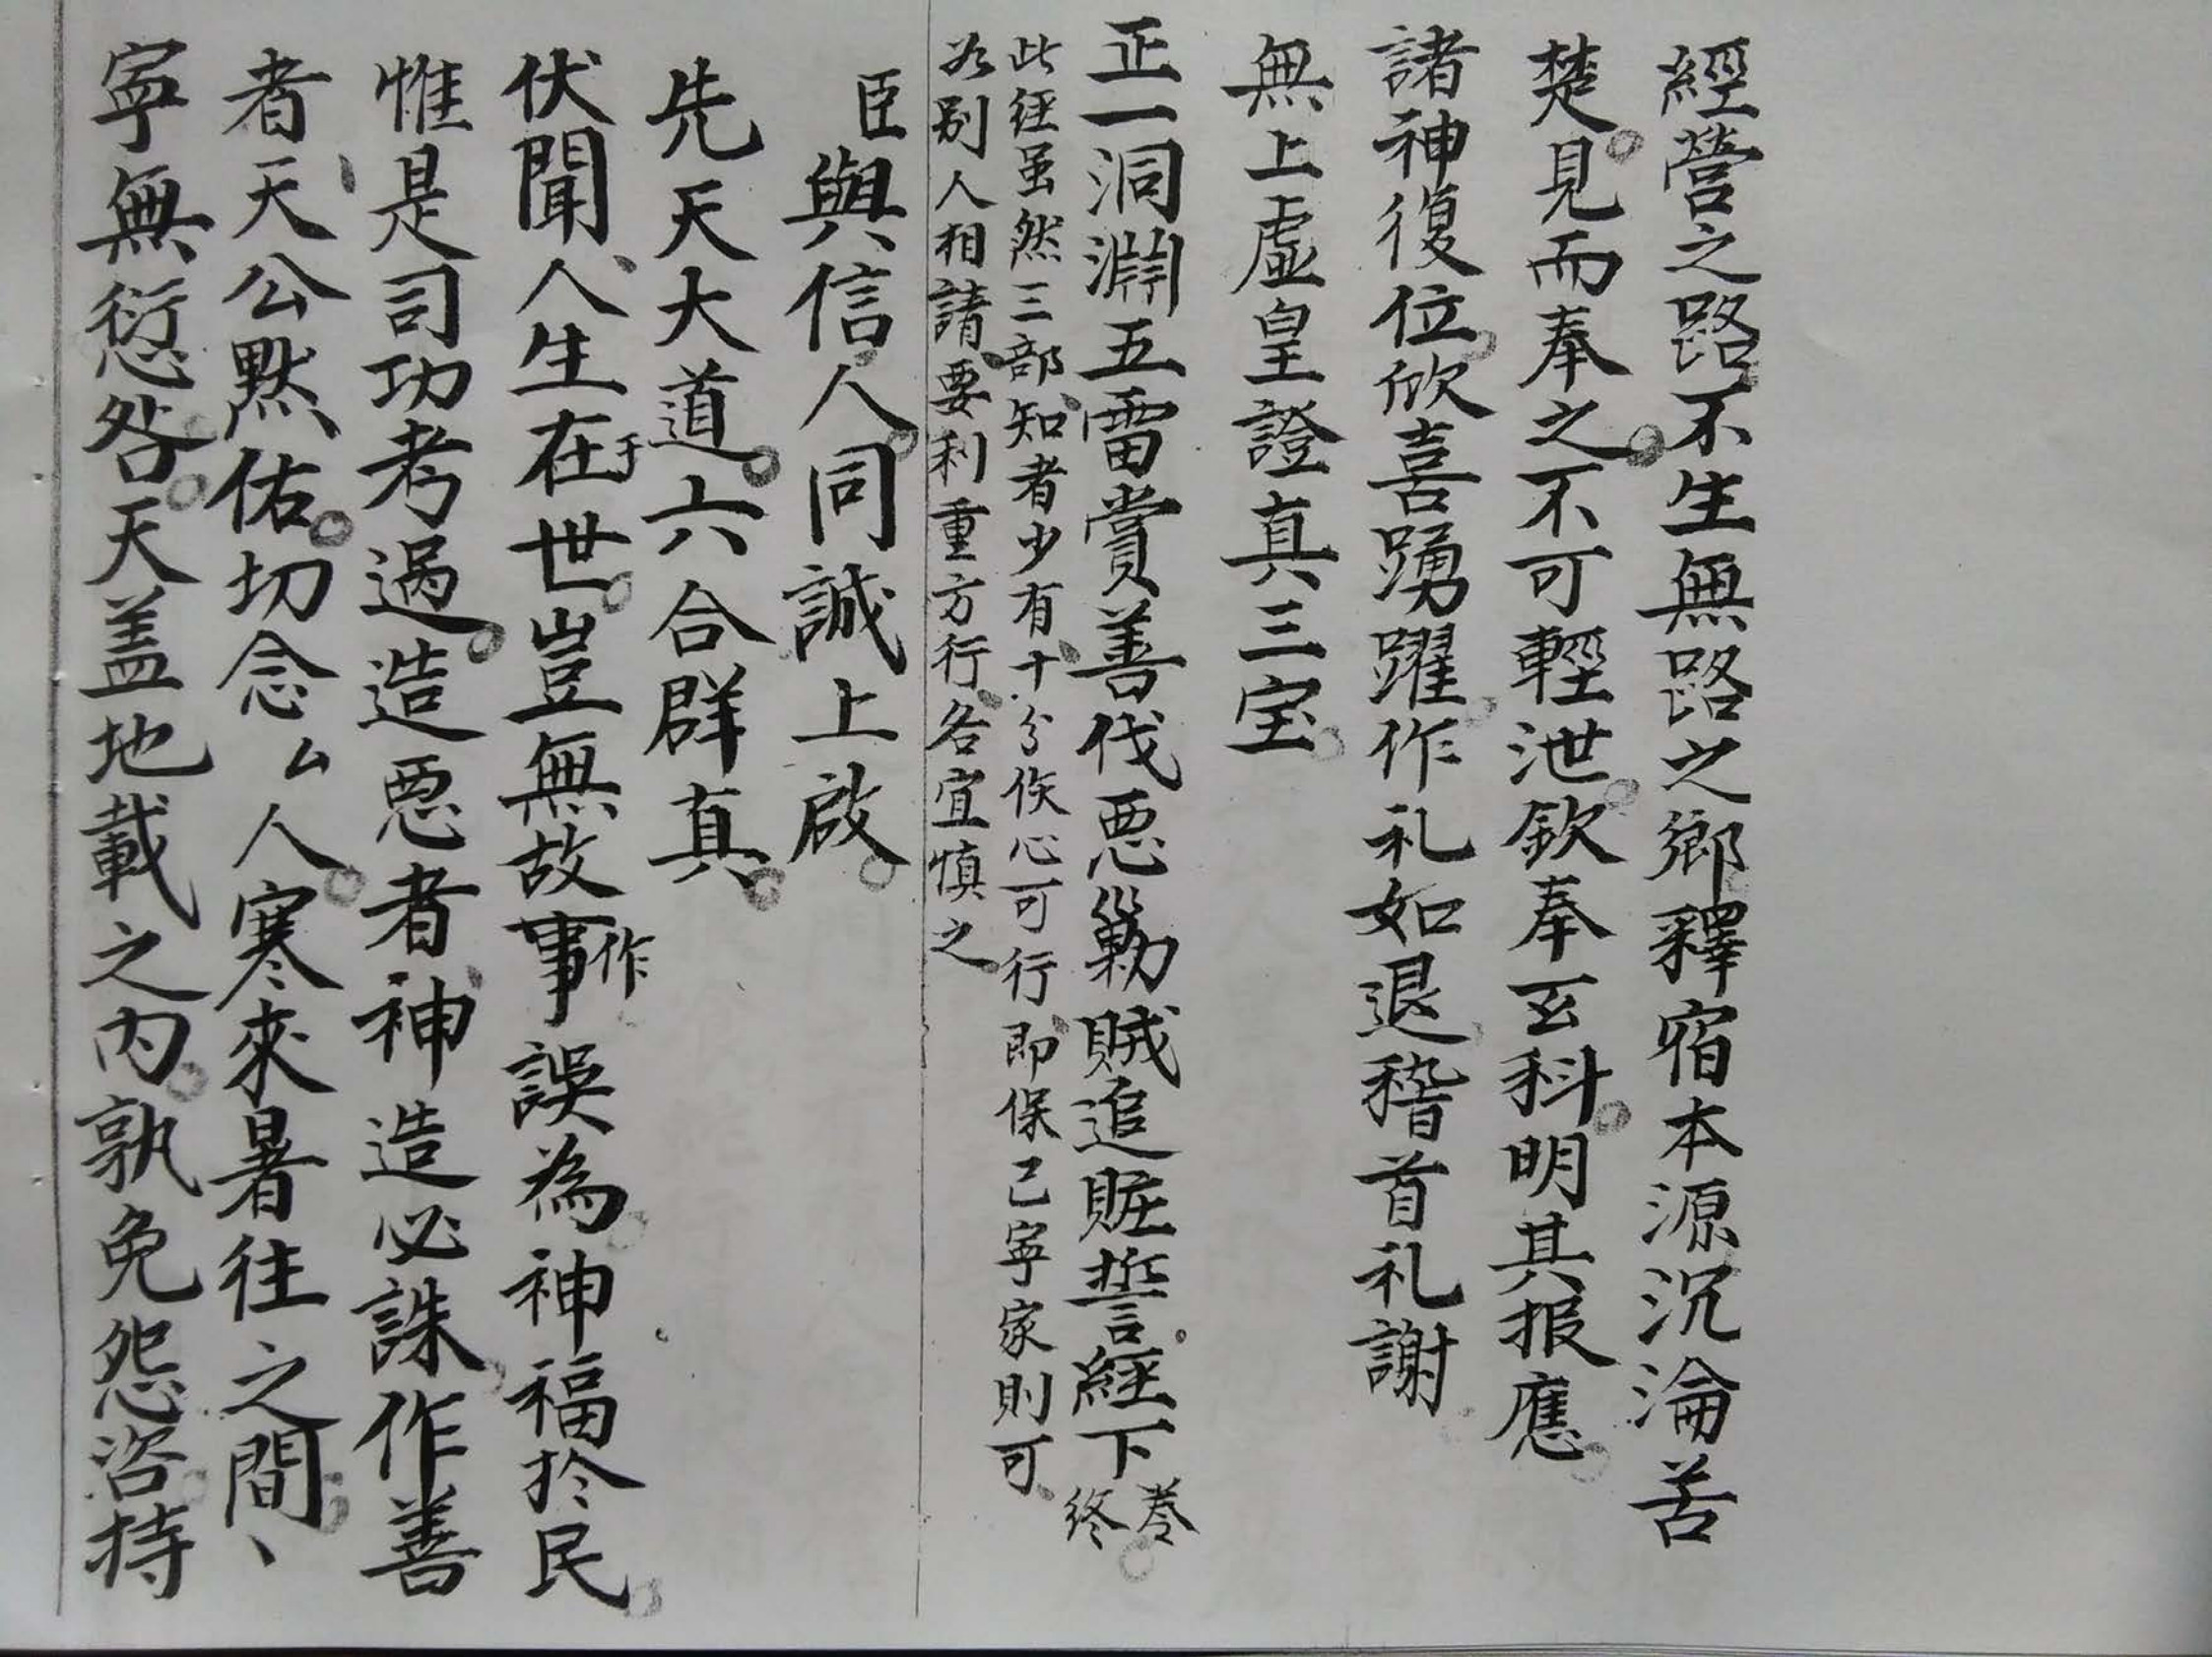 經營之路不生無路之鄉釋宿本源沉淪苦
楚見而奉之不可輕泄欽奉玄科明其报應
諸神復位欣喜踴躍作礼如退稽首礼謝
無上虛皇證真三宝
正一洞淵五雷賞善伐惡勦賊追賍誓經下卷終
此経虽然三部知者少有十分俟心可行即保己寧家則可
为别人相請要利重方行各宜慎之
臣與信人同誠上啟
先天大道六合群真
伏聞人生在于世豈無故事作誤為神福扵民
惟是司功考過造惡者神造必誅作善
者天公黙佑切念厶人寒來暑往之間
寧無愆咎天盖地載之内孰免怨咨持